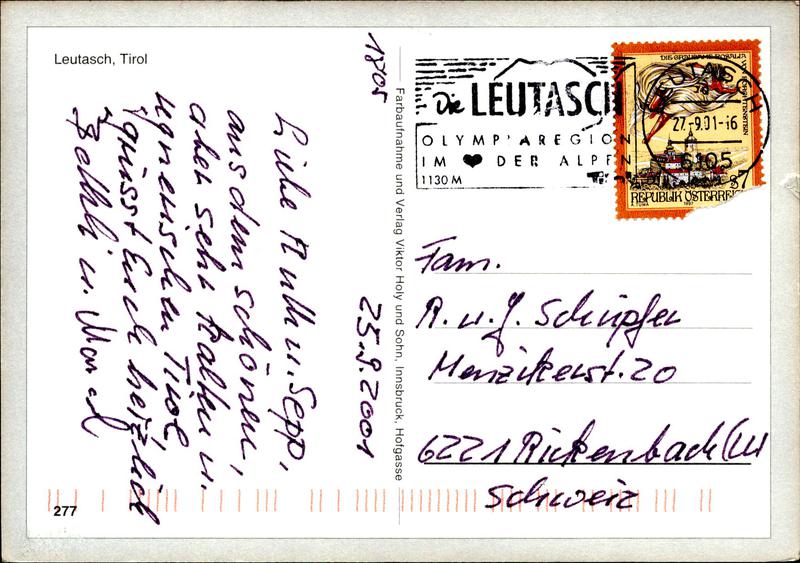 Leutasch, Tirol
1805
25.9.2001
Liebe Ruth u. Sepp,
aus dem schönen,
aber sehr kalten u.
regnerischen Tirol
grüsst Euch herzlich
Bethli u. Marcel
277
Farbaufnahme und Verlag Viktor Holy und Sohn, Innsbruck, Hofgasse
Die LEUTASCH
OLYMPIAREGION
IM ❤ DER ALPEN
1130 M
LEUTASCH
27.-9.01-16
6105
DIE GRAUSAME ROSALIA
S7
REPUBLIK ÖSTERREICH
A. TUMA 1997
Fam.
R. u. J. Schüpfer
Menzikerst. 20
6221 Rickenbach (LU
Schweiz